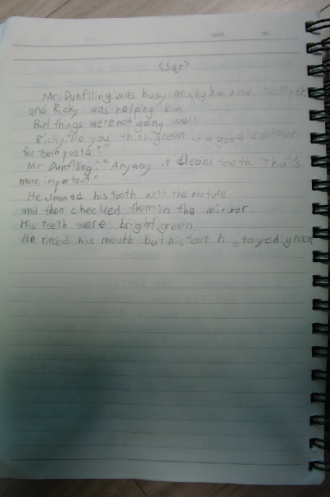 Mr. Dunfilling was busy mixing his new toothpaste
and Ricky was helping him
But things were not going well
Ricky: Do you think green is a good colour
for toothpaste?"
Mr Dunfilling: "Anyway it cleans teeth. That's
more important"
He cleaned his teeth with the mixture
and then checked them in the mirror.
His teeth were bright green.
He rinsed his mouth but his teeth stayed green